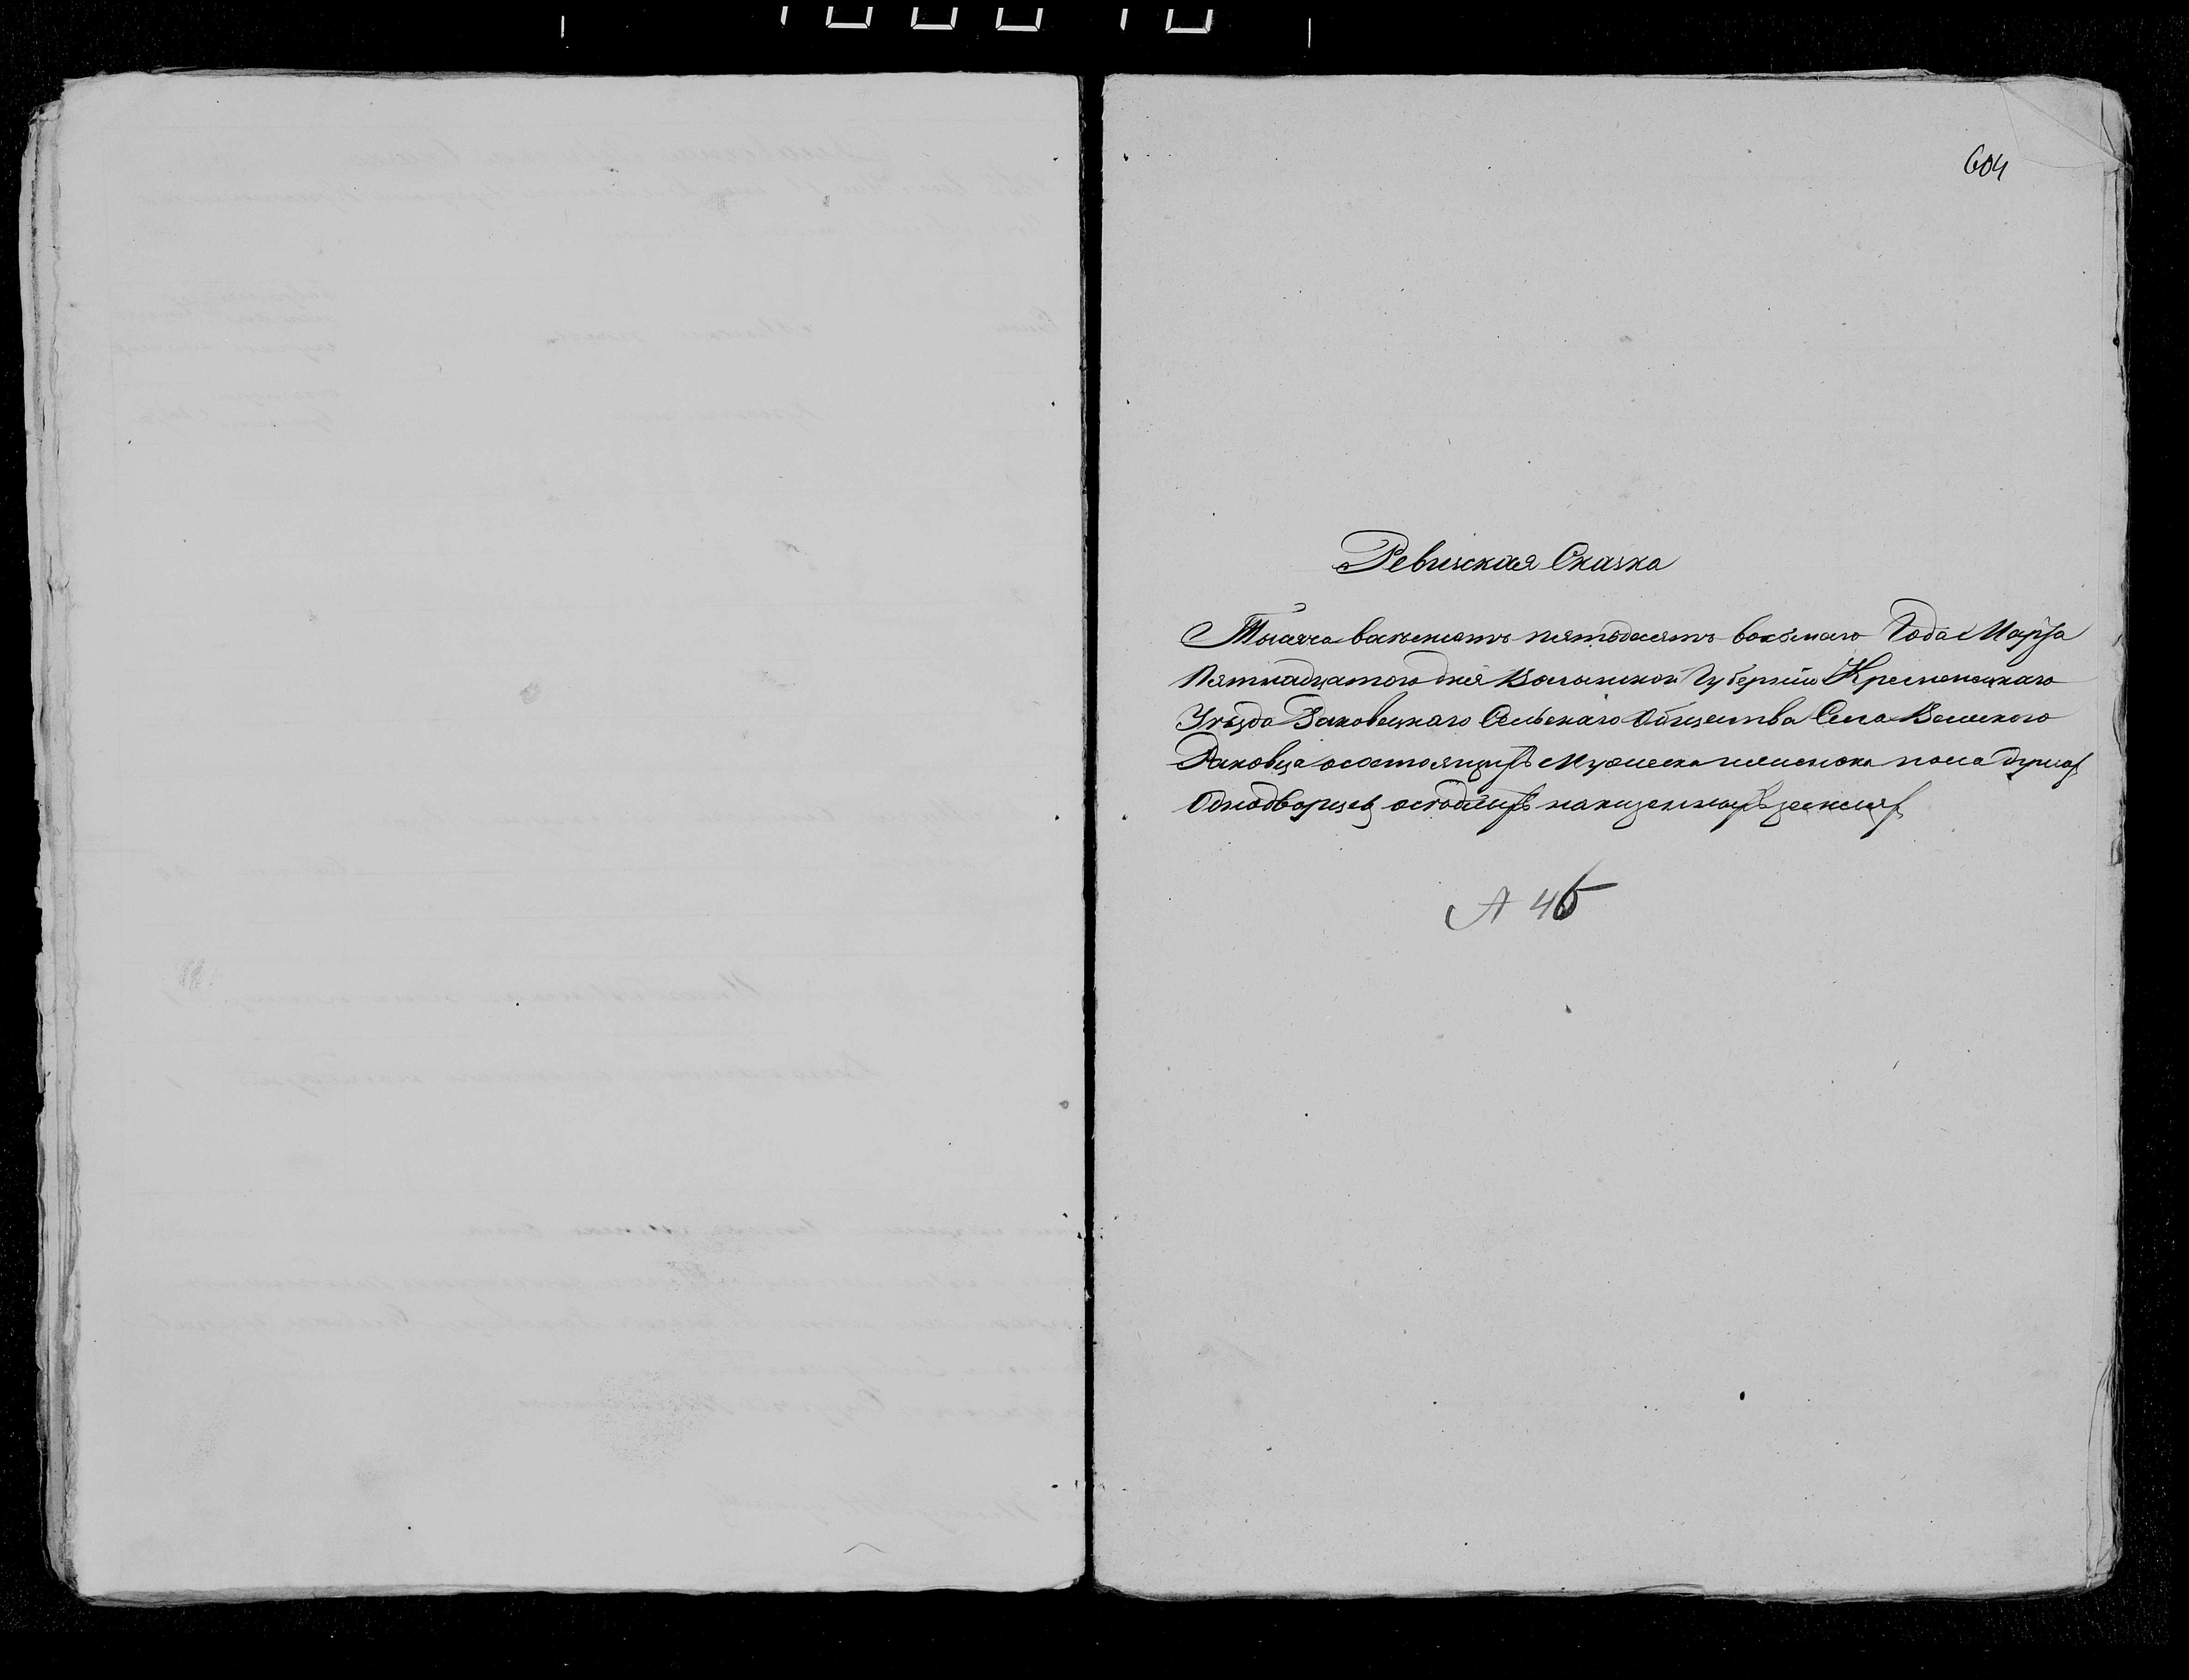 604
Ревизская Сказка
Тысяча восемьсотъ пятьдесятъ восьмаго Года Марта
Пятнадцатого дня Волынской Губернiи Кременецкаго
Уѣзда Раковецкаго Сельскаго Общества Села Великого
Раковца о состоящихъ Мужеска и женска пола душах
Однодворцев оседлыхъ на казенныхъ землях
№ 45